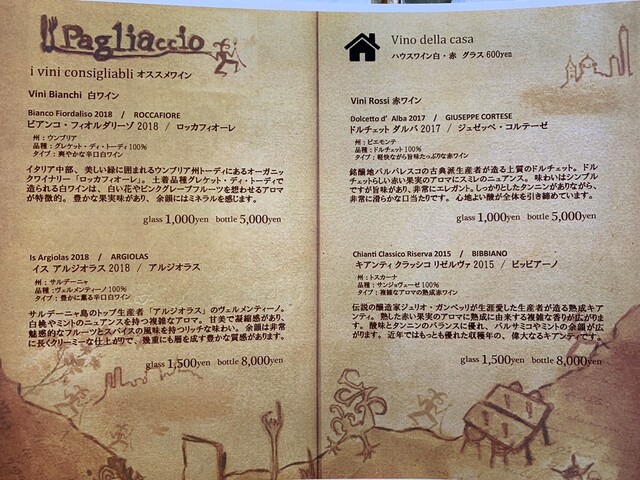 Pagliaccio
i vini consigliabli オススメワイン
Vini Bianchi 白ワイン
Bianco Fiordaliso 2018 / ROCCAFIORE
ビアンコ・フィオルダリーゾ 2018 / ロッカフィオーレ
州：ウンブリア
品種：グレケット・ディ・トーディ 100%
タイプ：爽やかな辛口白ワイン
イタリア中部、美しい緑に囲まれるウンブリア州トーディにあるオーガニッ
クワイナリー「ロッカフィオーレ」。土着品種グレケット・ディ・トーディで
造られる白ワインは、白い花やピンクグレープフルーツを想わせるアロマ
が特徴的。豊かな果実味があり、余韻にはミネラルを感じます。
glass 1,000yen bottle 5,000yen
Is Argiolas 2018 / ARGIOLAS
イス アルジオラス 2018 / アルジオラス
州：サルデーニャ
品種：ヴェルメンティーノ 100%
タイプ：豊かに薫る辛口白ワイン
サルデーニャ島のトップ生産者「アルジオラス」のヴェルメンティーノ。
白桃やミントのニュアンスを持つ複雑なアロマ。甘美で凝縮感があり、
魅惑的なフルーツとスパイスの風味を持つリッチな味わい。余韻は非常
に長くクリーミーな仕上がりで、幾重にも層を成す豊かな質感があります。
glass 1,500yen bottle 8,000yen
Vino della casa
ハウスワイン白・赤 グラス 600yen
Vini Rossi 赤ワイン
Dolcetto d' Alba 2017 / GIUSEPPE CORTESE
ドルチェット ダルバ 2017 / ジュゼッペ・コルテーゼ
州：ピエモンテ
品種：ドルチェット 100%
タイプ：軽快ながら旨味たっぷりな赤ワイン
銘醸地バルバレスコの古典派生産者が造る上質のドルチェット。ドル
チェットらしい赤い果実のアロマにスミレのニュアンス。味わいはシンプル
ですが旨味があり、非常にエレガント。しっかりとしたタンニンがありながら、
非常に滑らかな口当たりです。心地よい酸が全体を引き締めています。
glass 1,000yen bottle 5,000yen
Chianti Classico Riserva 2015 / BIBBIANO
キアンティ クラッシコ リゼルヴァ 2015 / ビッビアーノ
州：トスカーナ
品種：サンジョヴェーゼ 100%
タイプ：複雑なアロマの熟成赤ワイン
伝説の醸造家ジュリオ・ガンベッリが生涯愛した生産者が造る熟成キア
ンティ。熟した赤い果実のアロマに熟成に由来する複雑な香りが広がりま
す。酸味とタンニンのバランスに優れ、バルサミコやミントの余韻が広
がります。近年ではもっとも優れた収穫年の、偉大なるキアンティです。
glass 1,500yen bottle 8,000yen